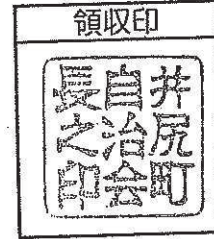 領収印
井尻町
自治会
長之印